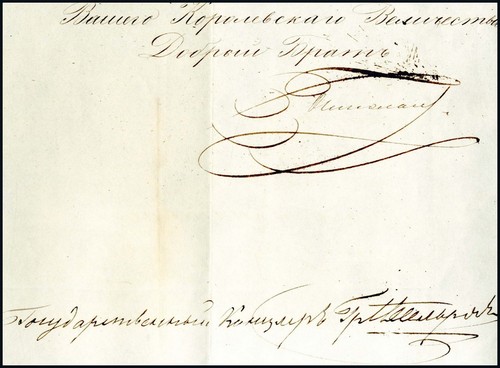 Вашего Королевскаго Величества
Добрый Братъ
Николай
Государственный Канцлеръ Гр. Нессельроде